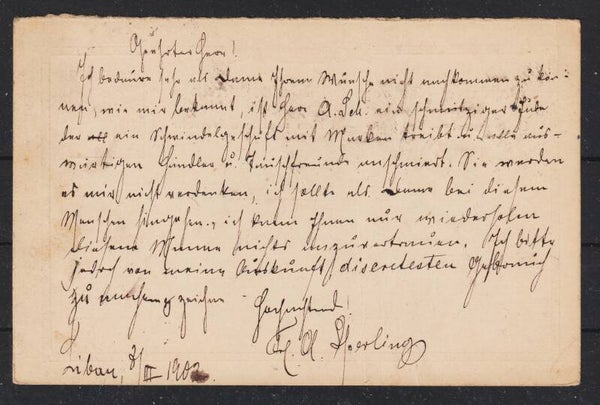 Geehrter Herr!
Ich bedaure sehr als Dame Ihrem Wunsche nicht nachkommen zu kön-
nen, wie mir bekannt, ist Herr A. Leh. ein schmutziger Jude
der ein Schwindelgeschäft mit Marken treibt u. alle aus-
wärtigen Händler u. Tauschfreunde anschmiert. Sie werden
es mir nicht verdenken, ich sollte als Dame bei diesem
Menschen hingehen, ich kann Ihnen nur wiederholen
diesem Manne nichts anzuvertrauen. Ich bitte
jedoch von meine Auskunft discretesten Gebrauch
zu machen zeichne Hochachtend!
A. Sperling
Libau, III 190